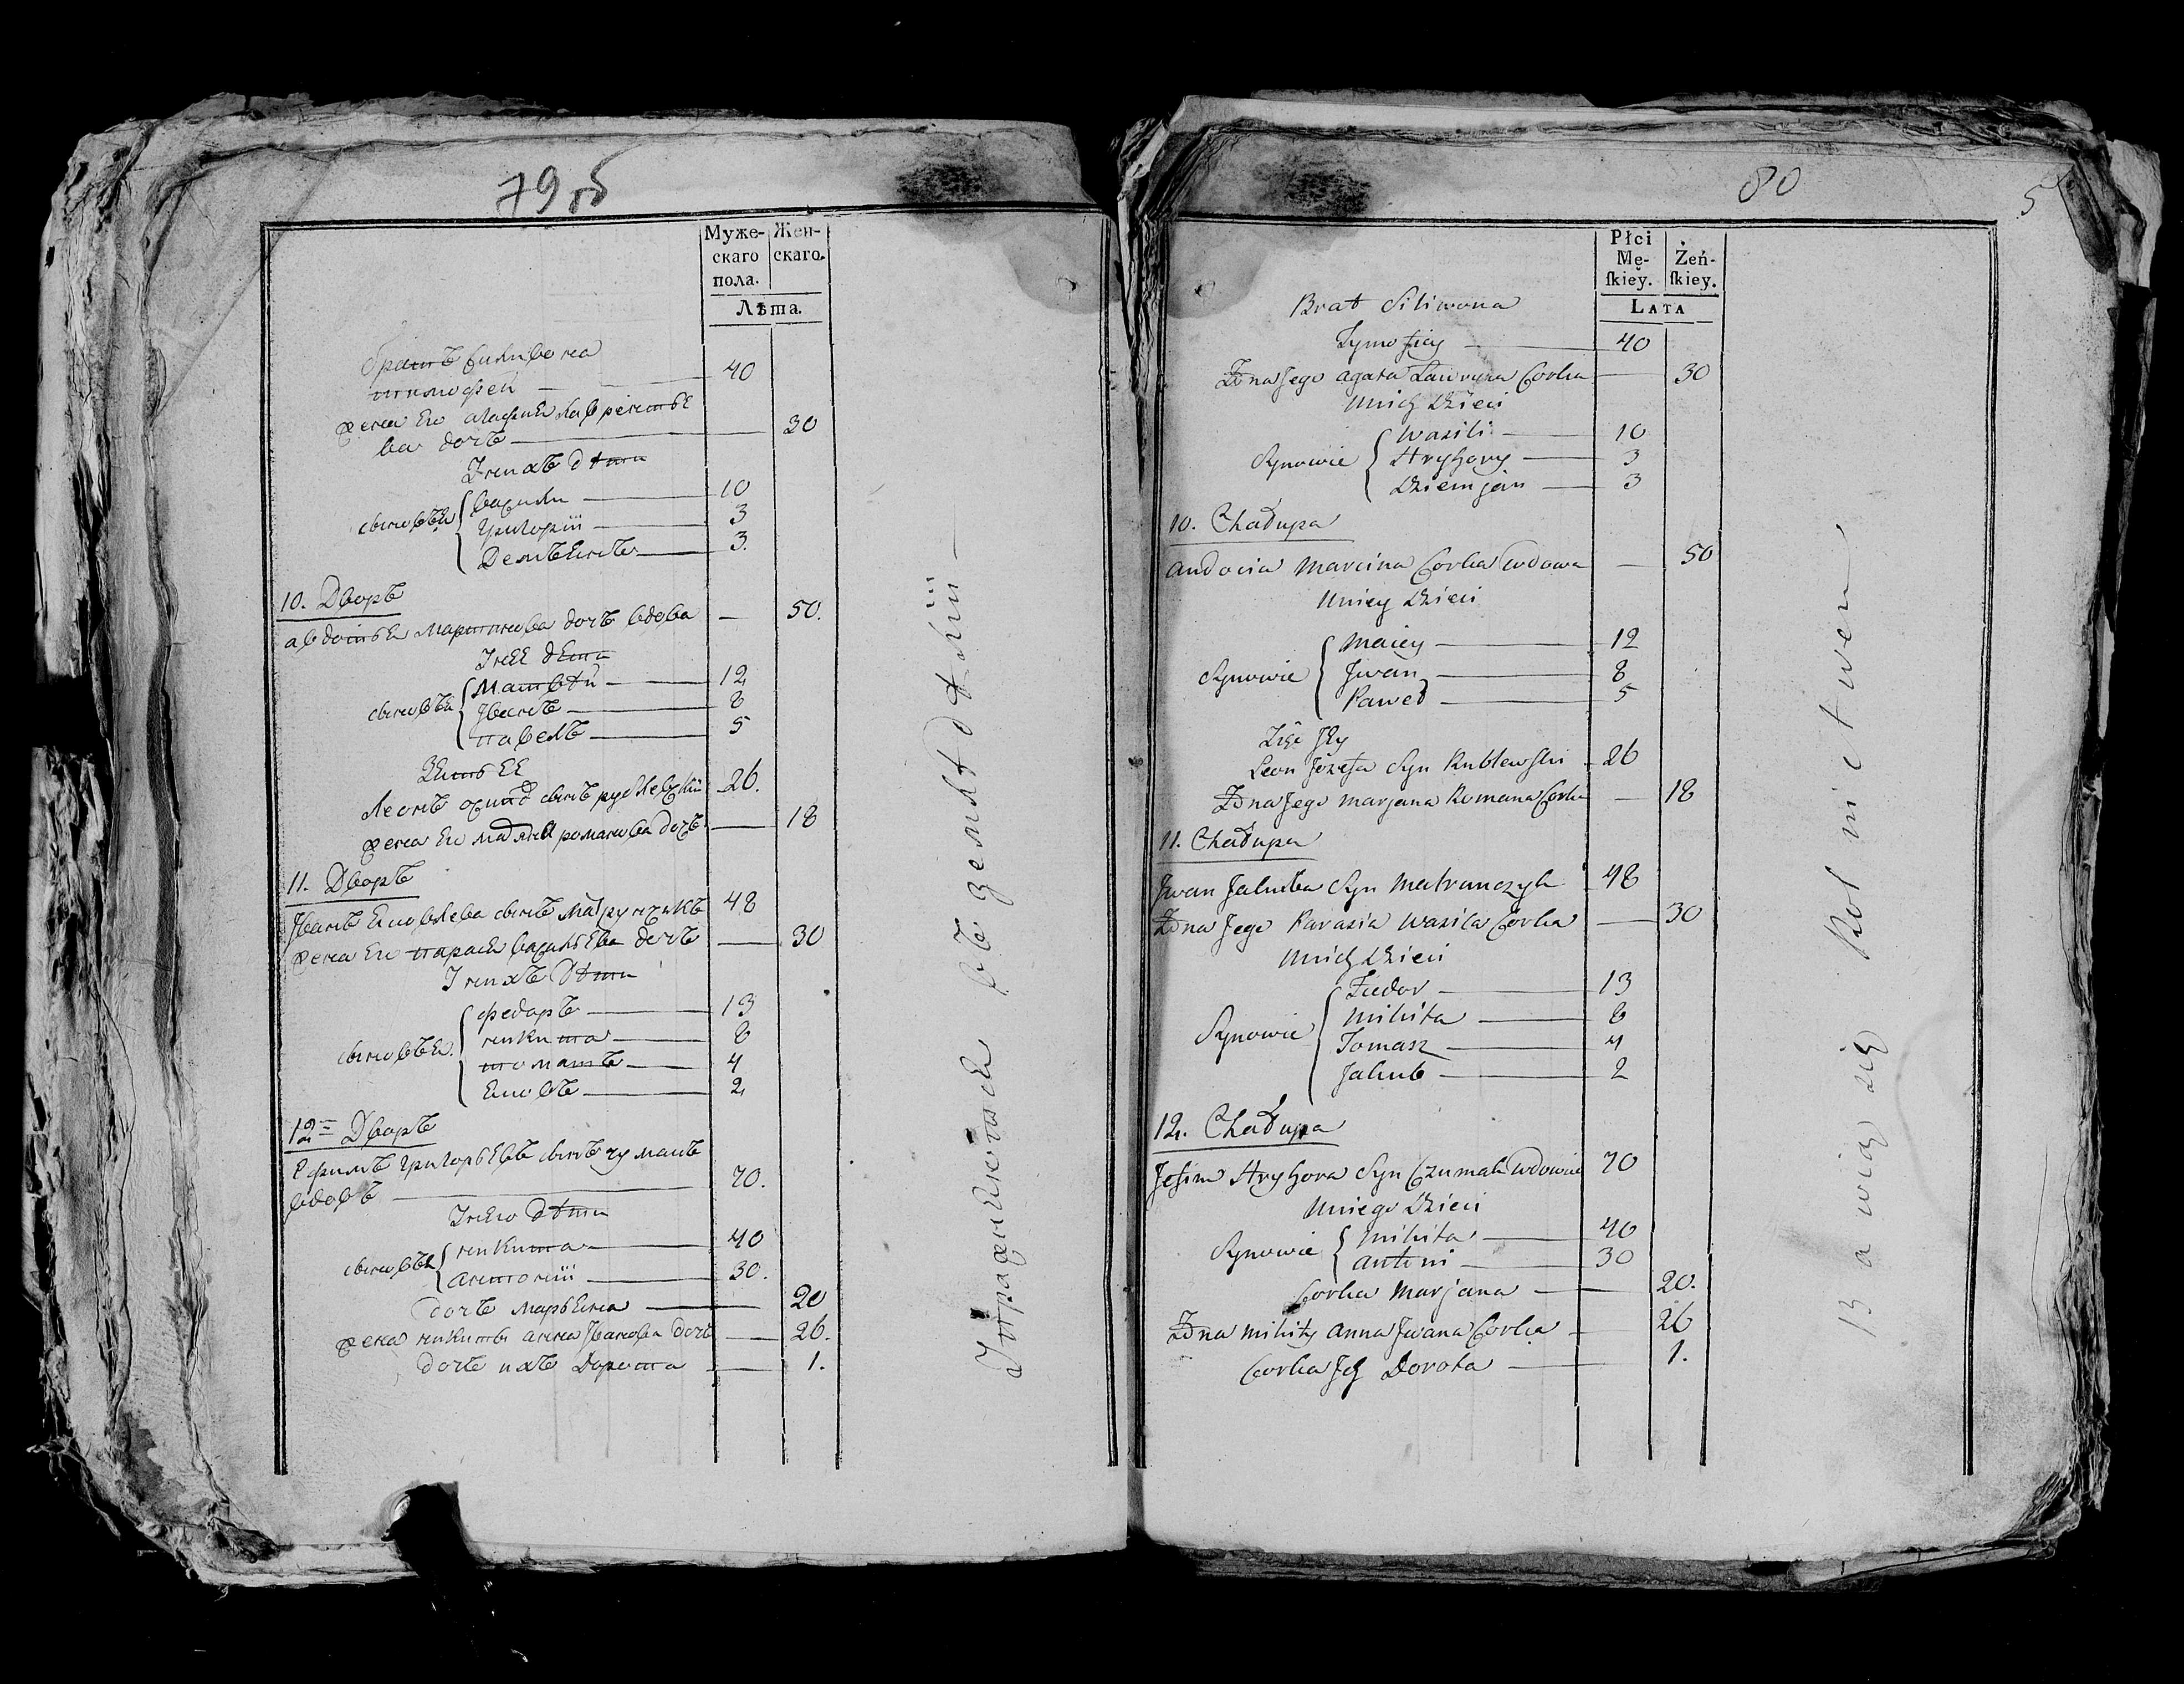 79об
Муже-
скаго
пола.
Жен-
скаго.
Лѣта.
братъ силивона
тимофей — 40
жена его агафия лаврентье
ва дочъ — 30
Унихъ дѣти
сыновья
василий — 10
григорий — 3
Демъянъ — 3.
10. Дворъ
авдотья мартинова дочъ вдова — 50.
Унее дети
сыновья
матвѣй — 12
Иванъ — 8
павелъ — 5
Зять ее
Леонъ осипа сынъ рублевский — 26.
жена его марьяна романова дочъ — 18
11. Дворъ
Иванъ яковлева сынъ матрунчикъ 48
жена его парася васильева дочъ — 30
Унихъ дѣти
сыновья
федоръ — 13
никита — 8
томашъ — 4
яковъ — 2
12= Дворъ
ефимъ григорьевъ сынъ чумакъ
вдовъ — 70.
Унего дѣти
сыновья
никита — 40
антоний — 30.
дочъ марьяна — 20
жена никиты анна Иванова дочъ — 26.
дочъ ихъ Дорота — 1.
Упражняются въ земледѣлии —
80
5
Płci
Mę-
ſkiey.
Żeń-
ſkiey.
LATA
Brat Siliwona
Tymofiey — 40
Żona Jego agata Lawryna Corka — 30
Unich Dzieci
Synowie
Wasili — 10
Hryhory — 3
Dziemjan — 3
10. Chałupa
Andocia Marcina Corka wdowa — 50
Uniey Dzieci
Synowie
Maciey — 12
Jwan — 8
Paweł — 5
Zięć Jey
Leon Jozefa Syn Rublewski — 26
Żona Jego Marjana Romana Corka — 18
11. Chałupa
Jwan Jakuba Syn Matrunczyk 48
Żona Jego Parasia Wasila Corka — 30
Unich Dzieci
Synowie
Fiedor — 13
Mikita — 8
Tomasz — 4
Jakub — 2
12. Chałupa
Jefim Hryhora Syn Czumak wdowiec 70
Uniego Dzieci
Synowie
Mikita — 40
Antoni — 30
Corka Marjana — 20.
Żona Mikity Anna Jwana Corka — 26
Corka Jch Dorota — 1.
Bawią się Rolnictwem